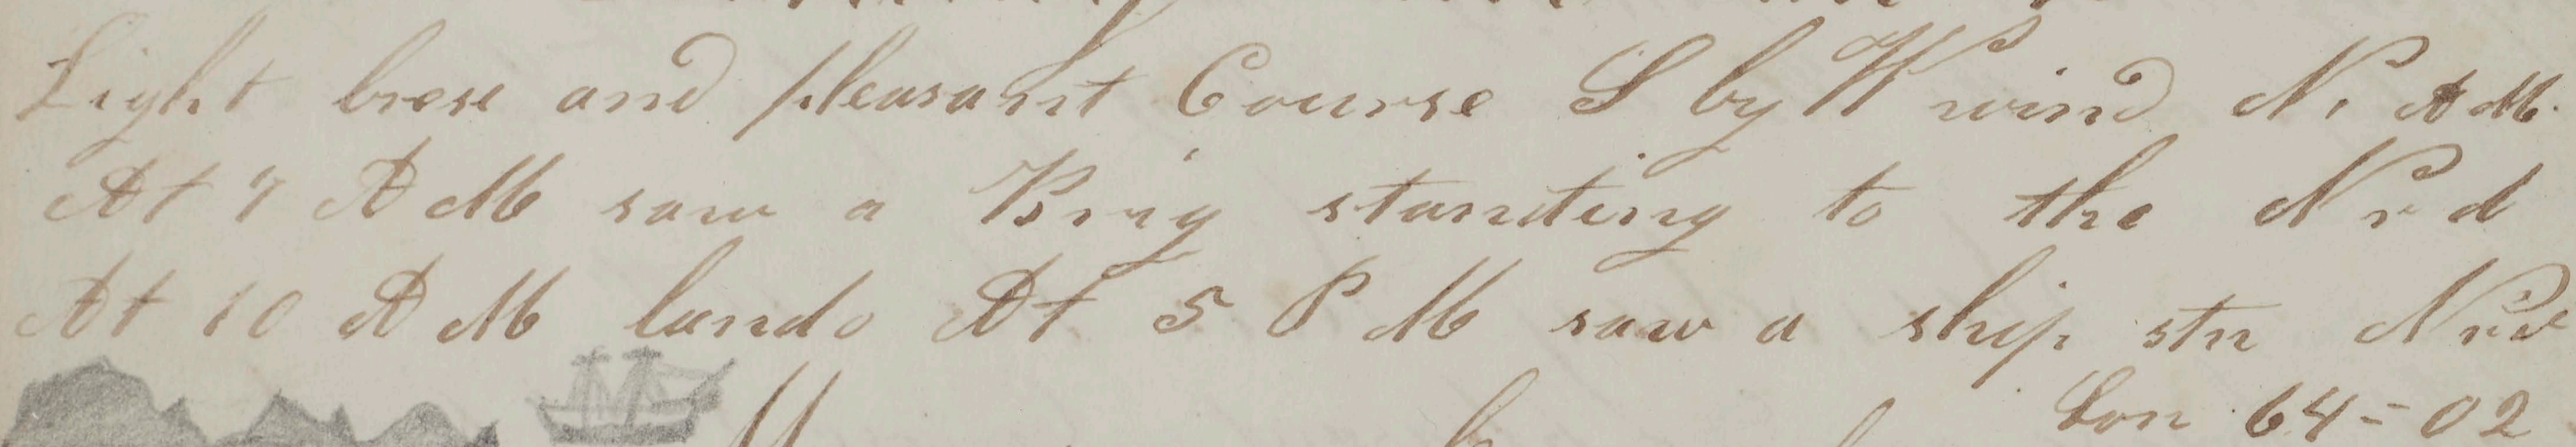 Light brese and pleasant Course S by W wind N, AM.
At 7 AM saw a Brig standing to the Nrd
At 10 AM lando At 5 PM saw a ship stn Nrd
Lon 64=02